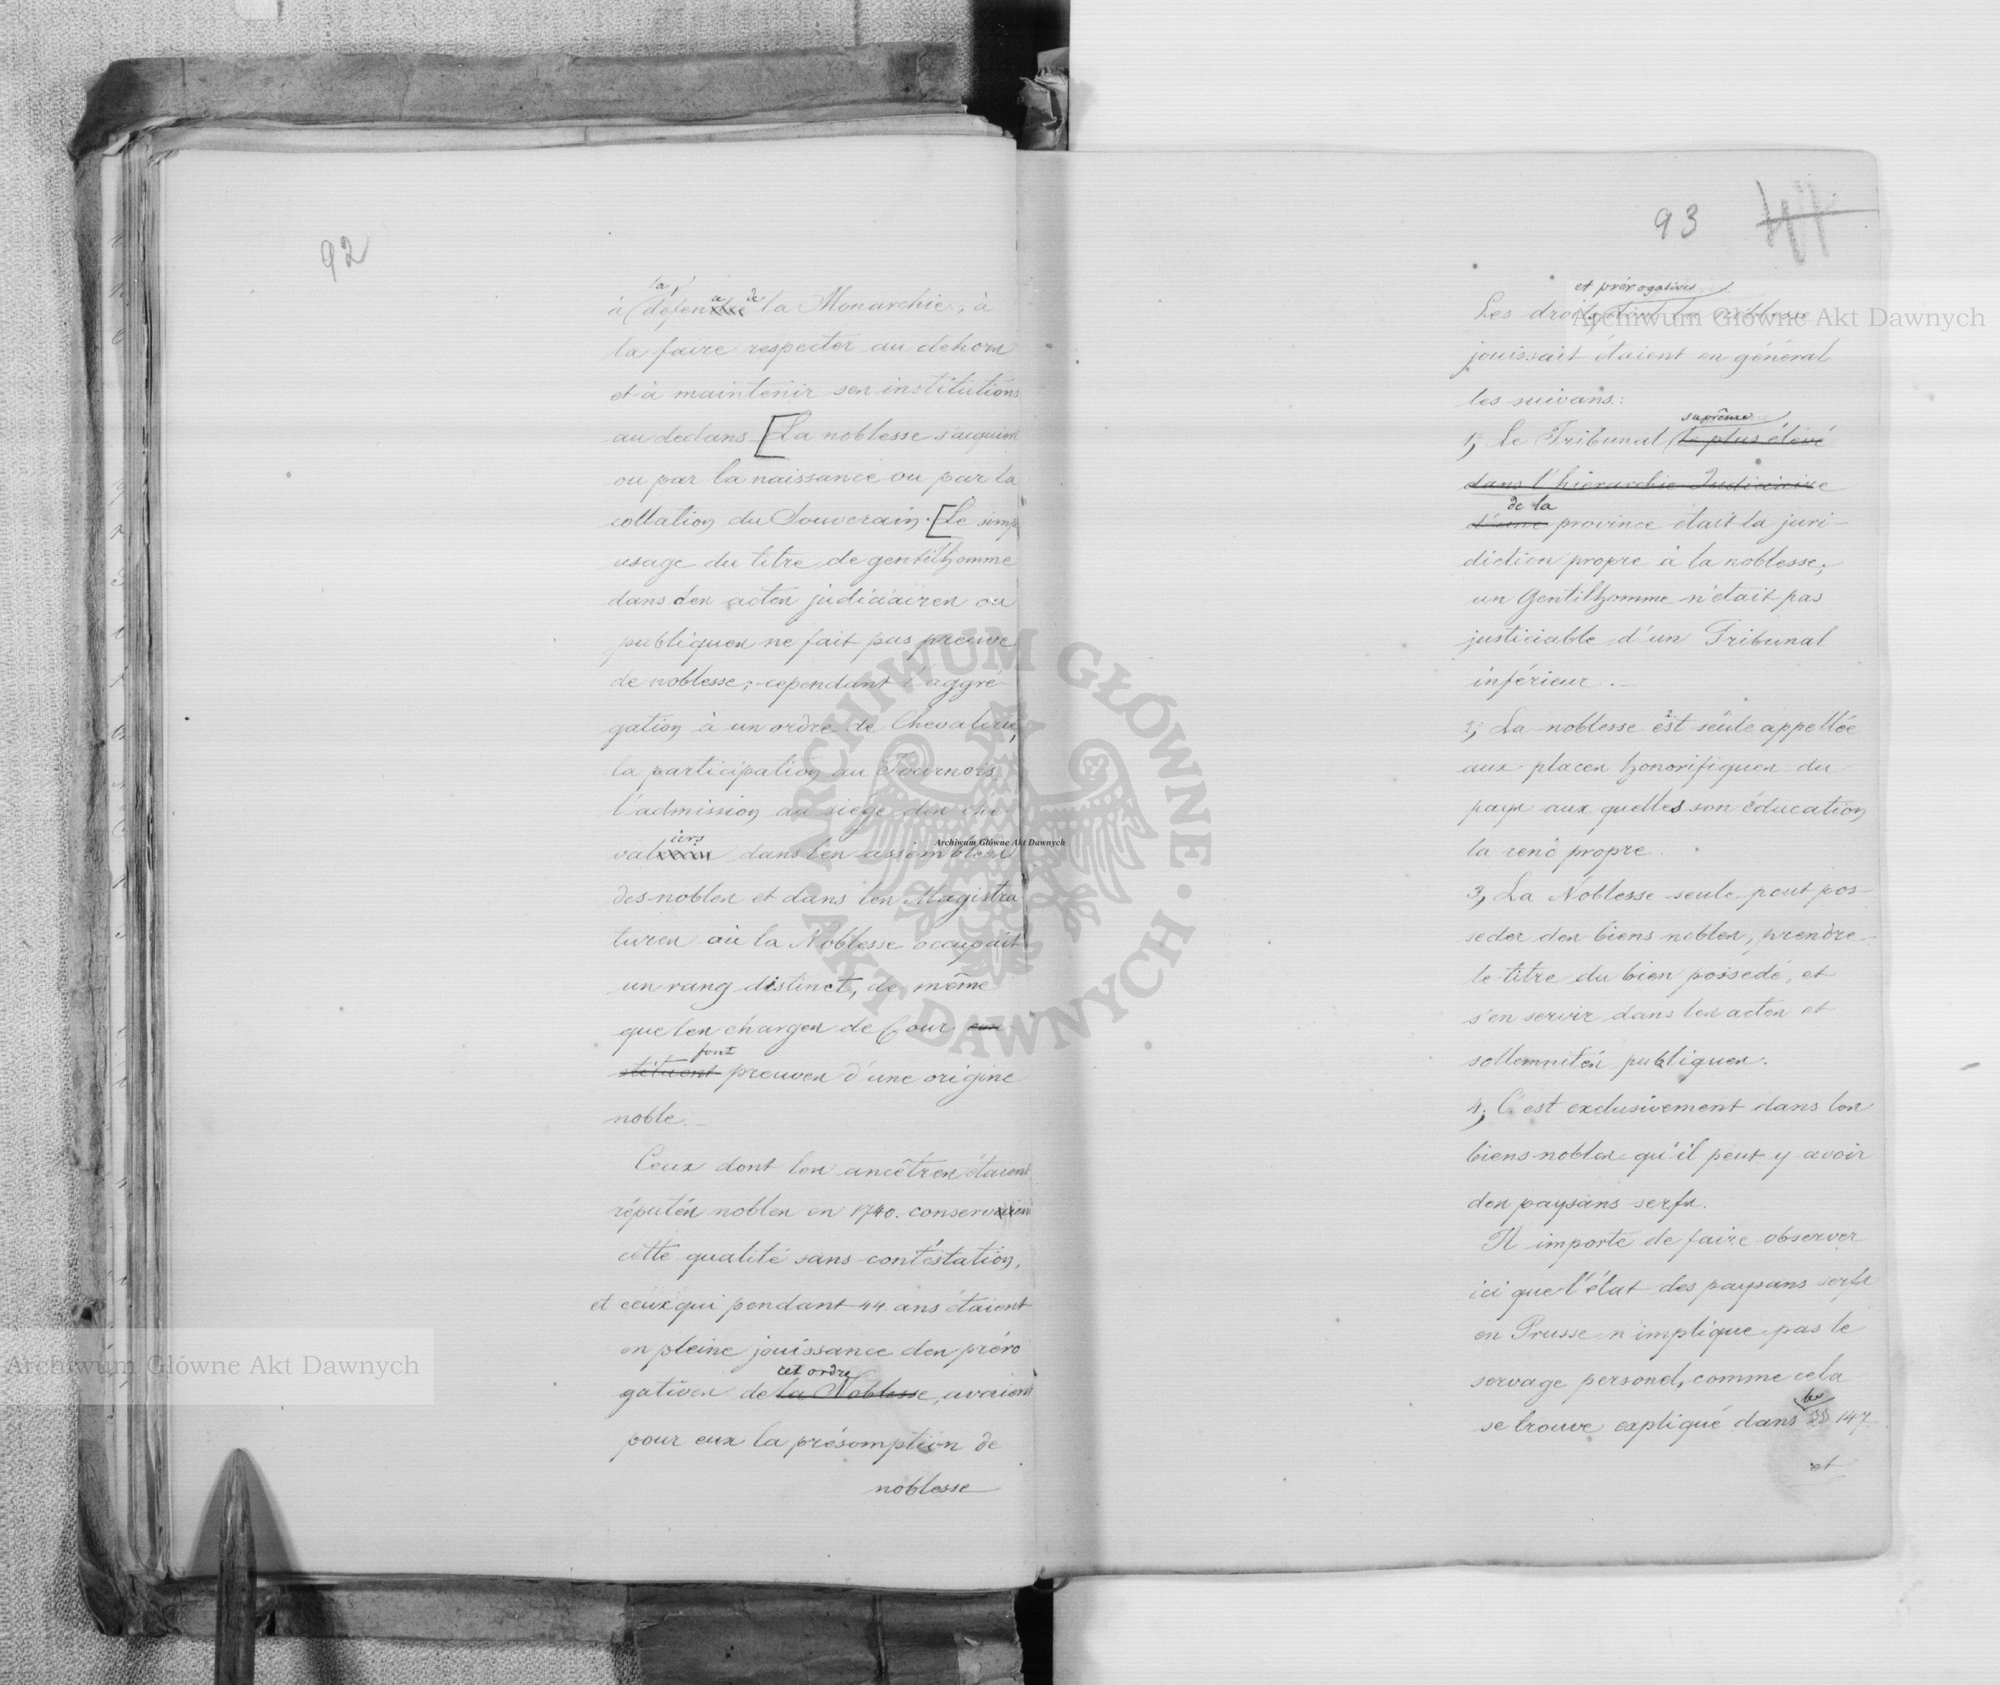 92
la,
a de
à défendre la Monarchie, à
la faire respecter au dehors
et à maintenir ses institutions
au dedans. [La noblesse s'acquiert
ou par la naissance ou par la
collation du Souverain. [Le simp
usage du titre de gentilhomme
dans des actes judiciaires ou
publiques ne fait pas preuve
de noblesse; cependant l'aggré
gation à un ordre de Chevaliers,
la participation au Tournois,
l'admission au siége des che
iers
val dans les assemblées
des nobles et dans les Magistra
tures où la Noblesse occupait
un rang distinct, de même
que les charges de Cour con
font
stituent preuves d'une origine
noble.
Ceux dont les ancêtres étaient
réputés nobles en 1740. conservaient
cette qualité sans contéstation,
et ceux qui pendant 44 ans étaient
en pleine jouissance des préro
cet ordre
gatives de la Noblesse, avaient
pour eux la présomption de
noblesse
93
et prérogatives
Les droits dont la noblesse
jouissait étaient en général
les suivans:
suprême
1, Le Tribunal le plus élevé
dans l'hierarchie Judiciaire
de la
d'une province était la juri-
diction propre à la noblesse;
un Gentilhomme n'était pas
justiciable d'un Tribunal
inférieur.
2, La noblesse est seule appellée
aux places honorifiques du
pays aux quelles son éducation
la rend propre.
3, La Noblesse seule peut pos-
seder des biens nobles, prendre
le titre du bien possedé, et
s'en servir dans les actes et
sollemnités publiques.
4, C'est exclusivement dans les
biens nobles qu'il peut y avoir
des paysans serfs.
Il importe de faire observer
ici que l'état des paysans serfs
en Prusse n'implique pas le
servage personel, comme cela
les
se trouve expliqué dans §§ 147
et
Archiwum Główne Akt Dawnych
Archiwum Główne Akt Dawnych
Archiwum Główne Akt Dawnych
ARCHIWUM GŁÓWNE · AKT DAWNYCH ·